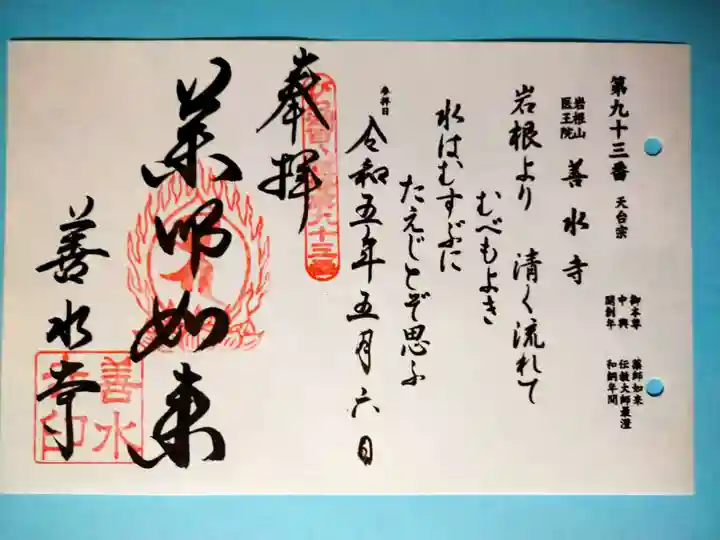 第九十三番 天台宗
岩根山
医王院
善水寺
御本尊 薬師如来
中興 伝教大師最澄
開創年 和銅年間
岩根より 清く流れて
むべもよき
水はむすぶに
たえじとぞ思ふ
参拝日
令和五年五月六日
奉拝
薬師如来
善水寺
善水
寺印